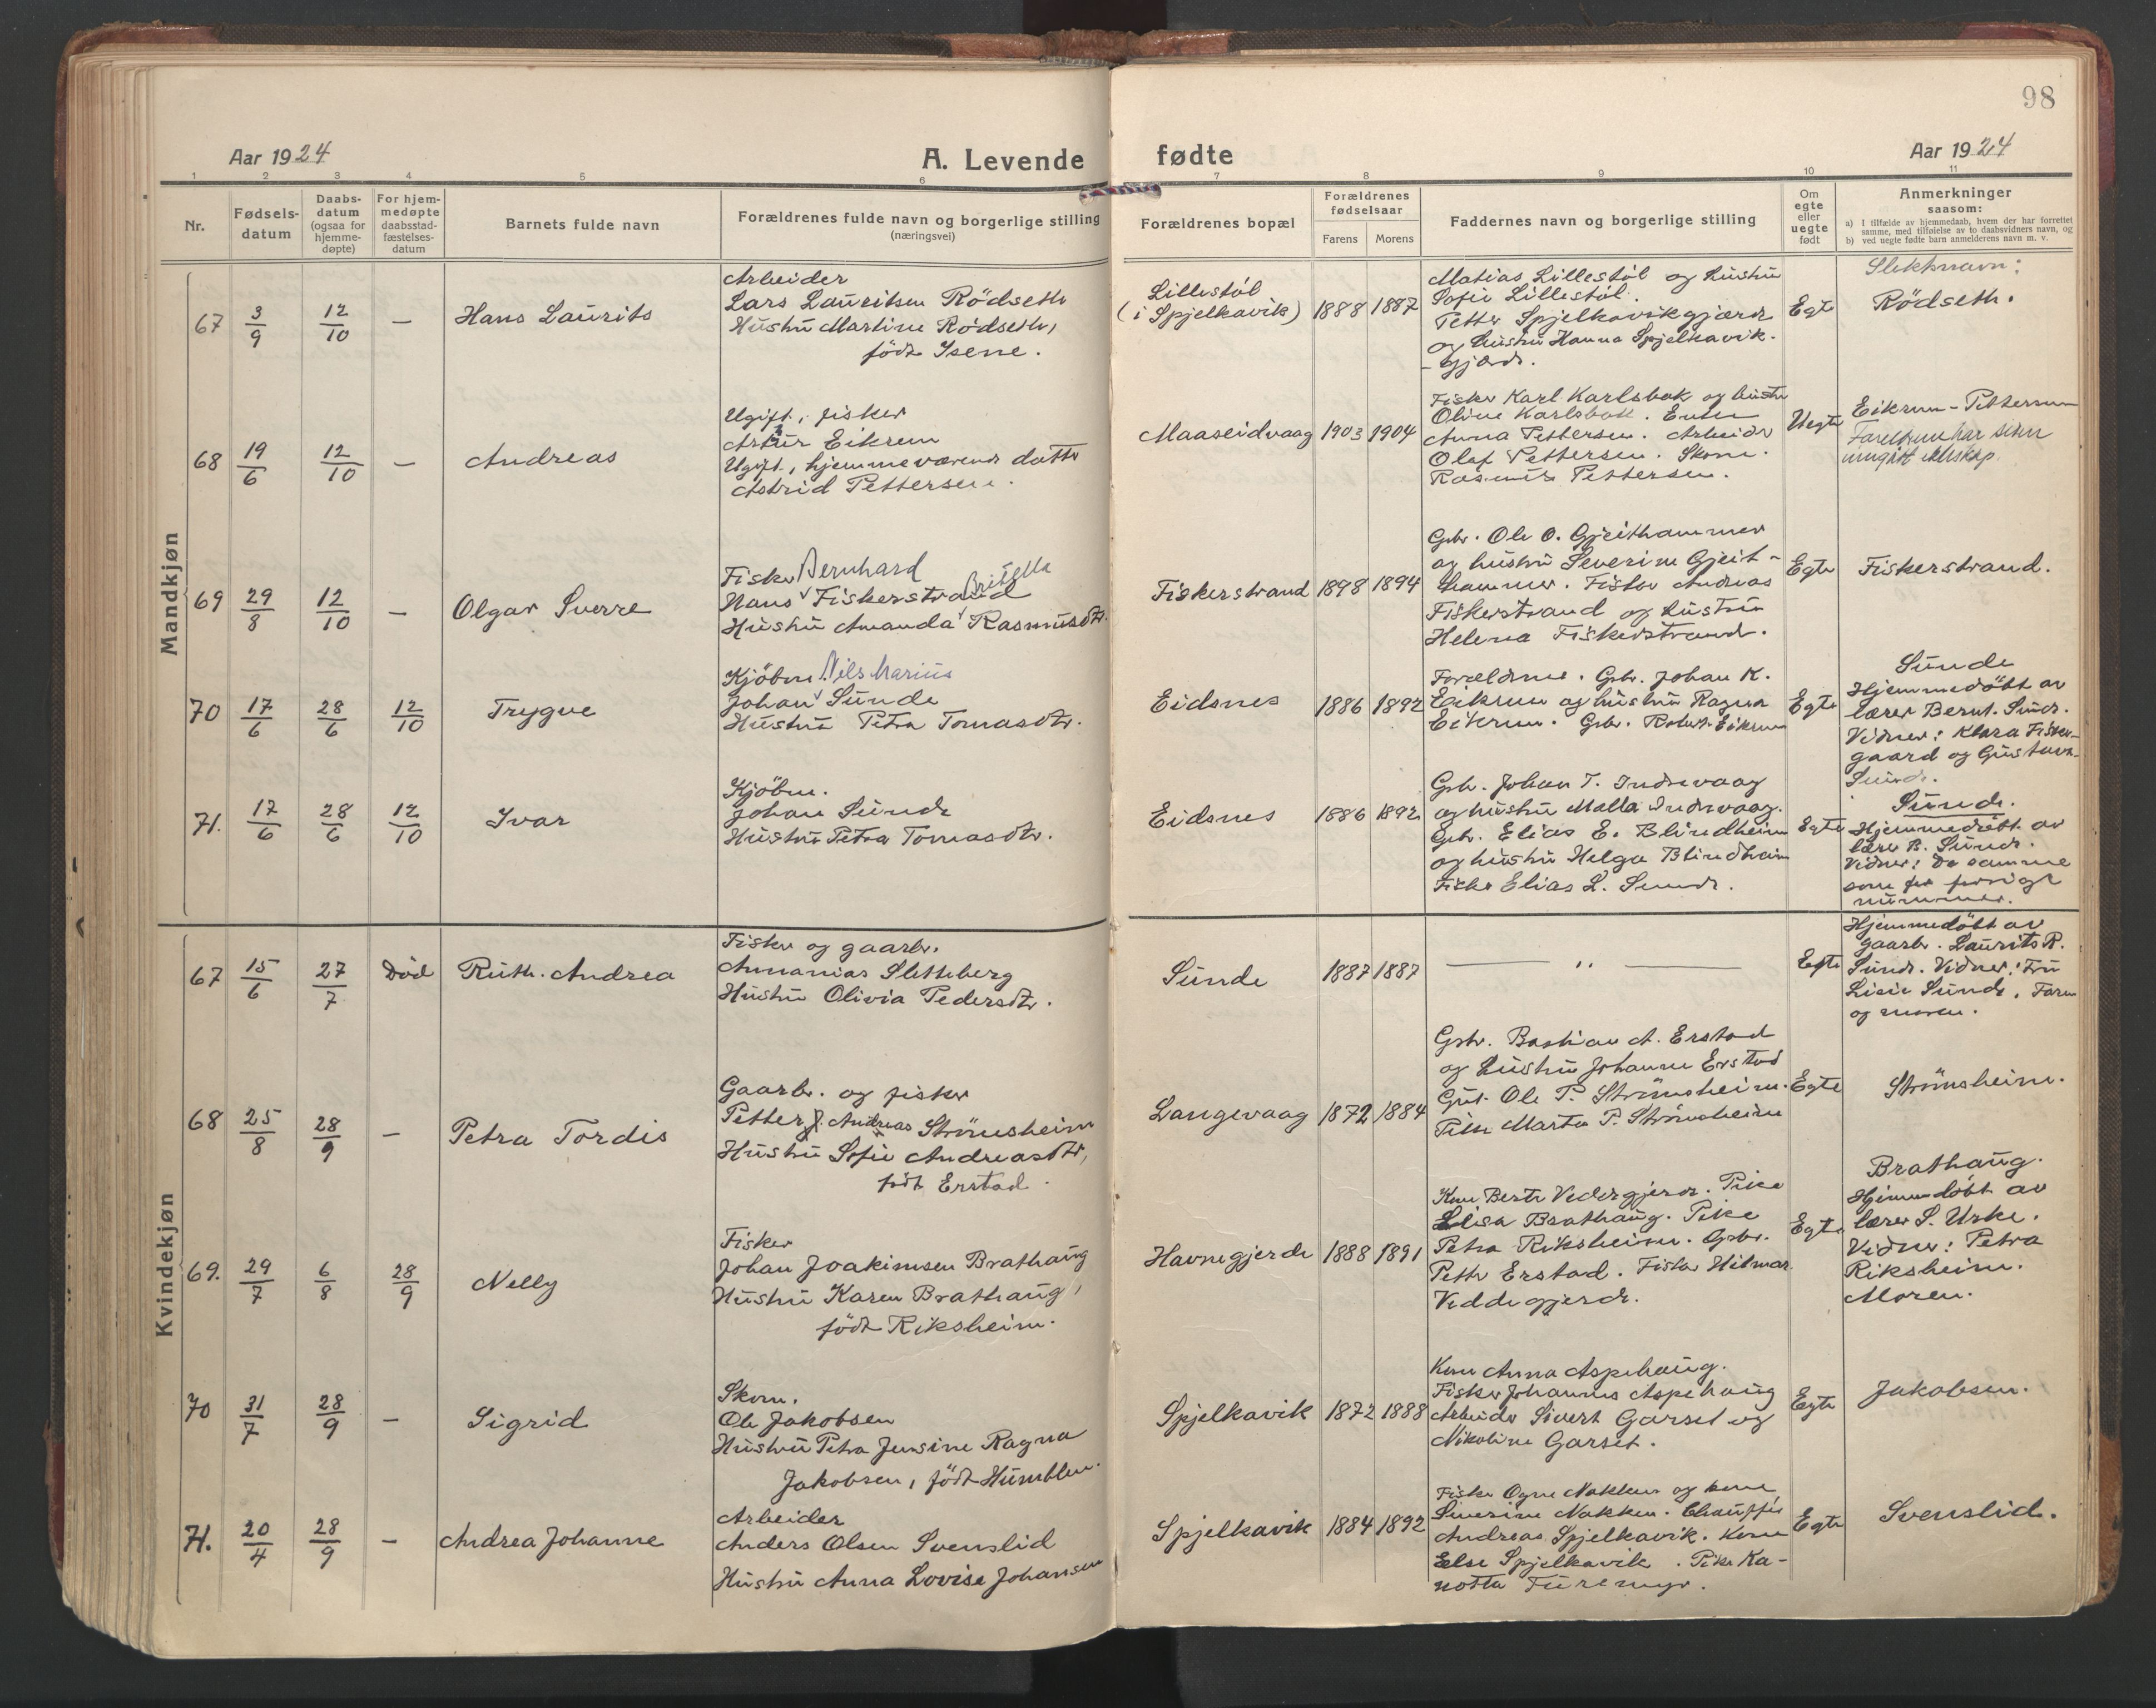 98
Aar 1924
A. Levende
fødte
Aar 1924
1 2 3 4 5 6 7 8 9 10 11
Nr.
Fødsels-
datum
Daabs-
datum
(ogsaa for
hjemme-
døpte)
For hjem-
medøpte
daabsstad-
fæstelses-
datum
Barnets fulde navn
Forældrenes fulde navn og borgerlige stilling
(næringsvei)
Forældrenes bopæl
Forældrenes
fødselsaar
Farens
Morens
Faddernes navn og borgerlige stilling
Om
egte
eller
uegte
født
Anmerkninger
saasom:
a) I tilfælde av hjemmedaab, hvem der har forrettet
samme, med tilføielse av to daabsvidners navn, og
b) ved uegte fødte barn anmelderens navn m. v.
Mandkjøn
67
3/9
12/10
—
Hans Laurits
Arbeider
Lars Lauritsen Rödseth
Hustru Martine Rödseth,
födt Isene.
Lillestöl
(i Spjelkavik)
1888
1887
Matias Lillestöl og hustru
Sofie Lillestöl.
Petter Spjelkavikgjærde
og hustru Hanna Spjelkavik-
-gjærde.
Egte
Slektsnavn:
Rödseth.
68
19/6
12/10
—
Andreas
Ugift, fisker
Artur Eikrem
Ugift, hjemmeværende datter
Astrid Pettersen.
Maaseidvaag
1903
1904
Fisker Karl Karlsbak og hustru
Oline Karlsbak. Enke
Anna Pettersen. Arbeider
Olaf Pettersen. Skom.
Rasmus Pettersen.
Uegte
Eikrem-Pettersen
Foreldrene har senere
inngått ekteskap.
69
29/8
12/10
—
Olgar Sverre
Fisker Bernhard
Hans Fiskerstrand Britella
Hustru Amanda Rasmusdtr.
Fiskerstrand
1898
1894
Gbr. Ole O. Gjeithammer
og hustru Severine Gjeit-
hammer. Fisker Andreas
Fiskerstrand og hustru
Helena Fiskerstrand.
Egte
Fiskerstrand.
70
17/6
28/6
12/10
Trygve
Kjöbm. Nils Marius
Johan Sunde
Hustru Petra Tomasdtr.
Eidsnes
1886
1892
Forældrene. Gbr. Johan K.
Eikrem og hustru Ragna
Eikrem. Gbr. Robert Eikrem
Egte
Sunde
Hjemmedöbt av
lærer Bernt Sunde.
Vidner: Klara Fisker-
gaard og Gustava
Sunde.
71.
17/6
28/6
12/10
Ivar
Kjöbm.
Johan Sunde
Hustru Petra Tomasdtr.
Eidsnes
1886
1892
Gbr. Johan T. Indrevaag
og hustru Malla Indrevaag.
Gbr. Elias E. Blindheim
og hustru Helga Blindheim
Fisker Elias L. Sunde.
Egte
Sunde.
Hjemmedöbt av
lærer B. Sunde.
Vidner: De samme
som for forrige
nummer.
Kvindekjøn
67
15/6
27/7
Död
Ruth Andrea
Fisker og gaarbr.
Annanias Sletteberg
Hustru Olivia Pedersdtr.
Sunde
1887
1887
— ,, —
Egte
Hjemmedöbt av
gaarbr. Laurits R.
Sunde. Vidner: Fru
Lisie Sunde. Faren
og moren.
68
25/8
28/9
—
Petra Tordis
Gaarbr. og fisker
Petter J. Andreas Strömsheim
Hustru Sofie Andreasdtr,
födt Erstad.
Langevaag
1872
1884
Gbr. Bastian A. Erstad
og hustru Johanne Erstad
Gut Ole P. Strömsheim.
Pike Marta P. Strömsheim
Egte
Strömsheim.
69.
29/7
6/8
28/9
Nelly
Fisker
Johan Joakimsen Brathaug
Hustru Karen Brathaug,
födt Riksheim.
Havnegjerde
1888
1891
Kone Berte Veddegjerde. Pike
Elisa Brathaug. Pike
Petra Riksheim. Gbr.
Petter Erstad. Fisker Hilmar
Veddegjerde.
Egte
Brathaug.
Hjemmedöbt av
lærer S. Urke.
Vidner: Petra
Riksheim.
Moren.
70
31/7
28/9
—
Sigrid
Skom.
Ole Jakobsen
Hustru Petra Jensine Ragna
Jakobsen, födt Humblen.
Spjelkavik
1872
1888
Kone Anna Aspehaug.
Fisker Johannes Aspehaug
Arbeider Sivert Garset og
Nikoline Garset.
Egte
Jakobsen.
71.
20/4
28/9
—
Andrea Johanne
Arbeider
Anders Olsen Svenslid
Hustru Anna Lovise Johansen
Spjelkavik
1884
1892
Fisker Ogne Nakken og kone
Severine Nakken. Chauffør
Andreas Spjelkavik. Kone
Else Spjelkavik. Pike Ka-
notta Furemyr.
Egte
Svenslid.